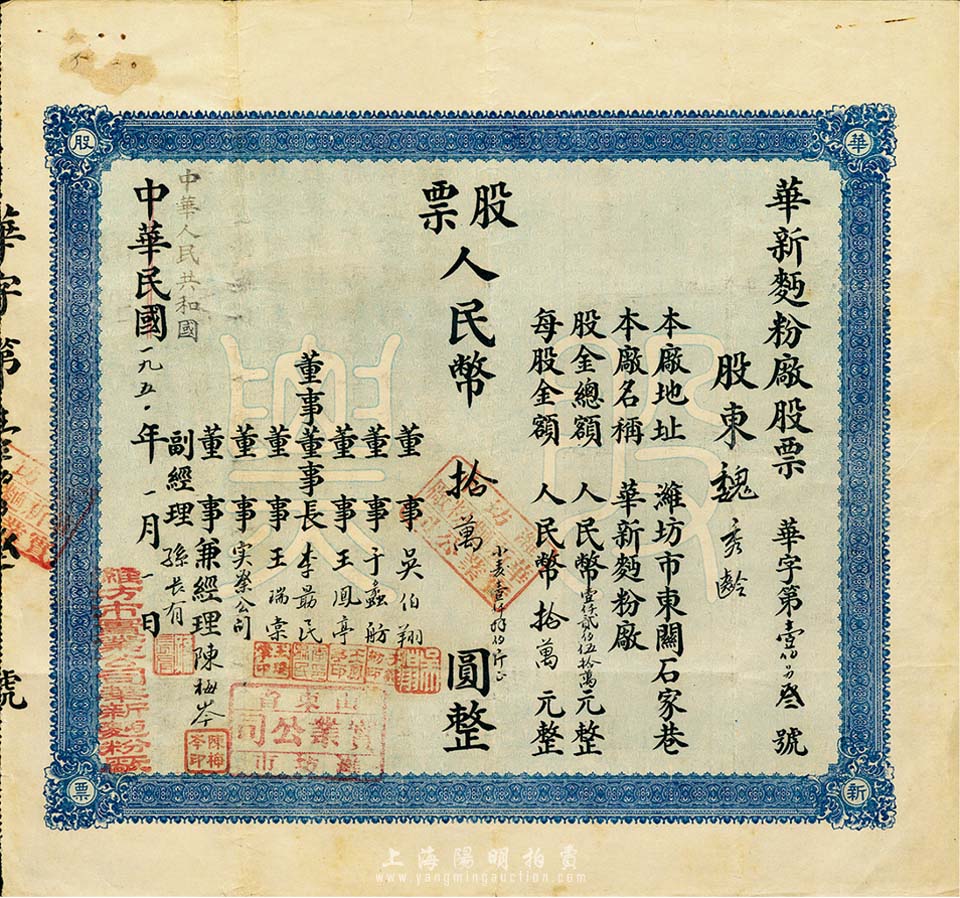 華新麪粉廠股票 華字第壹佰另叁號
股東 魏秀齡
本廠地址 濰坊市東關石家巷
本廠名稱 華新麪粉廠
股金總額 人民幣壹仟貳佰伍拾萬元整
每股金額 人民幣拾萬元整
股票
人民幣 拾萬 圓整
董事 吳伯翔
董事 于蠡舫
董事 王鳳亭
董事董事長 李勗民
董事 王瑞棠
董事 实業公司
董事兼經理 陳梅岑
副經理 孫长有
中華人民共和國
中華民國一九五〇年一月一日
華
新
股
票
山東省
實業公司
濰坊市
陳梅岑印
濰方市實業公司華新麵粉廠
華字第
號
上海陽明拍賣
www.yangmingauction.com